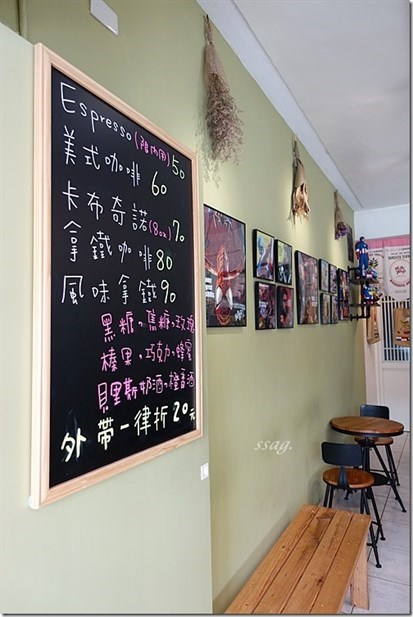 Espresso (限內用) 50
美式咖啡 60
卡布奇諾 (8oz) 70
拿鐵咖啡 80
風味拿鐵 90
黑糖。焦糖。玫瑰
榛果。巧克力。蜂蜜
貝里斯奶酒。橙香酒
外帶一律折20元
ssag.